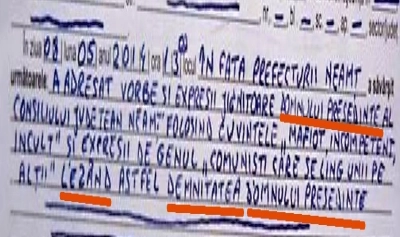 nr. — bl — sc. — ap. — sector/judeţ
În ziua 08 luna 05 anul 2014 ora 13⁰⁰ ÎN FATA PREFECTURII NEAMT a săvârşit
următoarele A ADRESAT VORBE SI EXPRESII JIGNITOARE DOMNULUI PRESEDINTE AL
CONSILIULUI JUDETEAN NEAMT FOLOSIND CUVINTELE „MAFIOT, INCOMPETENT,
INCULT" SI EXPRESII DE GENUL „COMUNISTI CARE SE LING UNII PE
ALTII" LEZÂND ASTFEL DEMNITATEA DOMNULUI PRESEDINTE